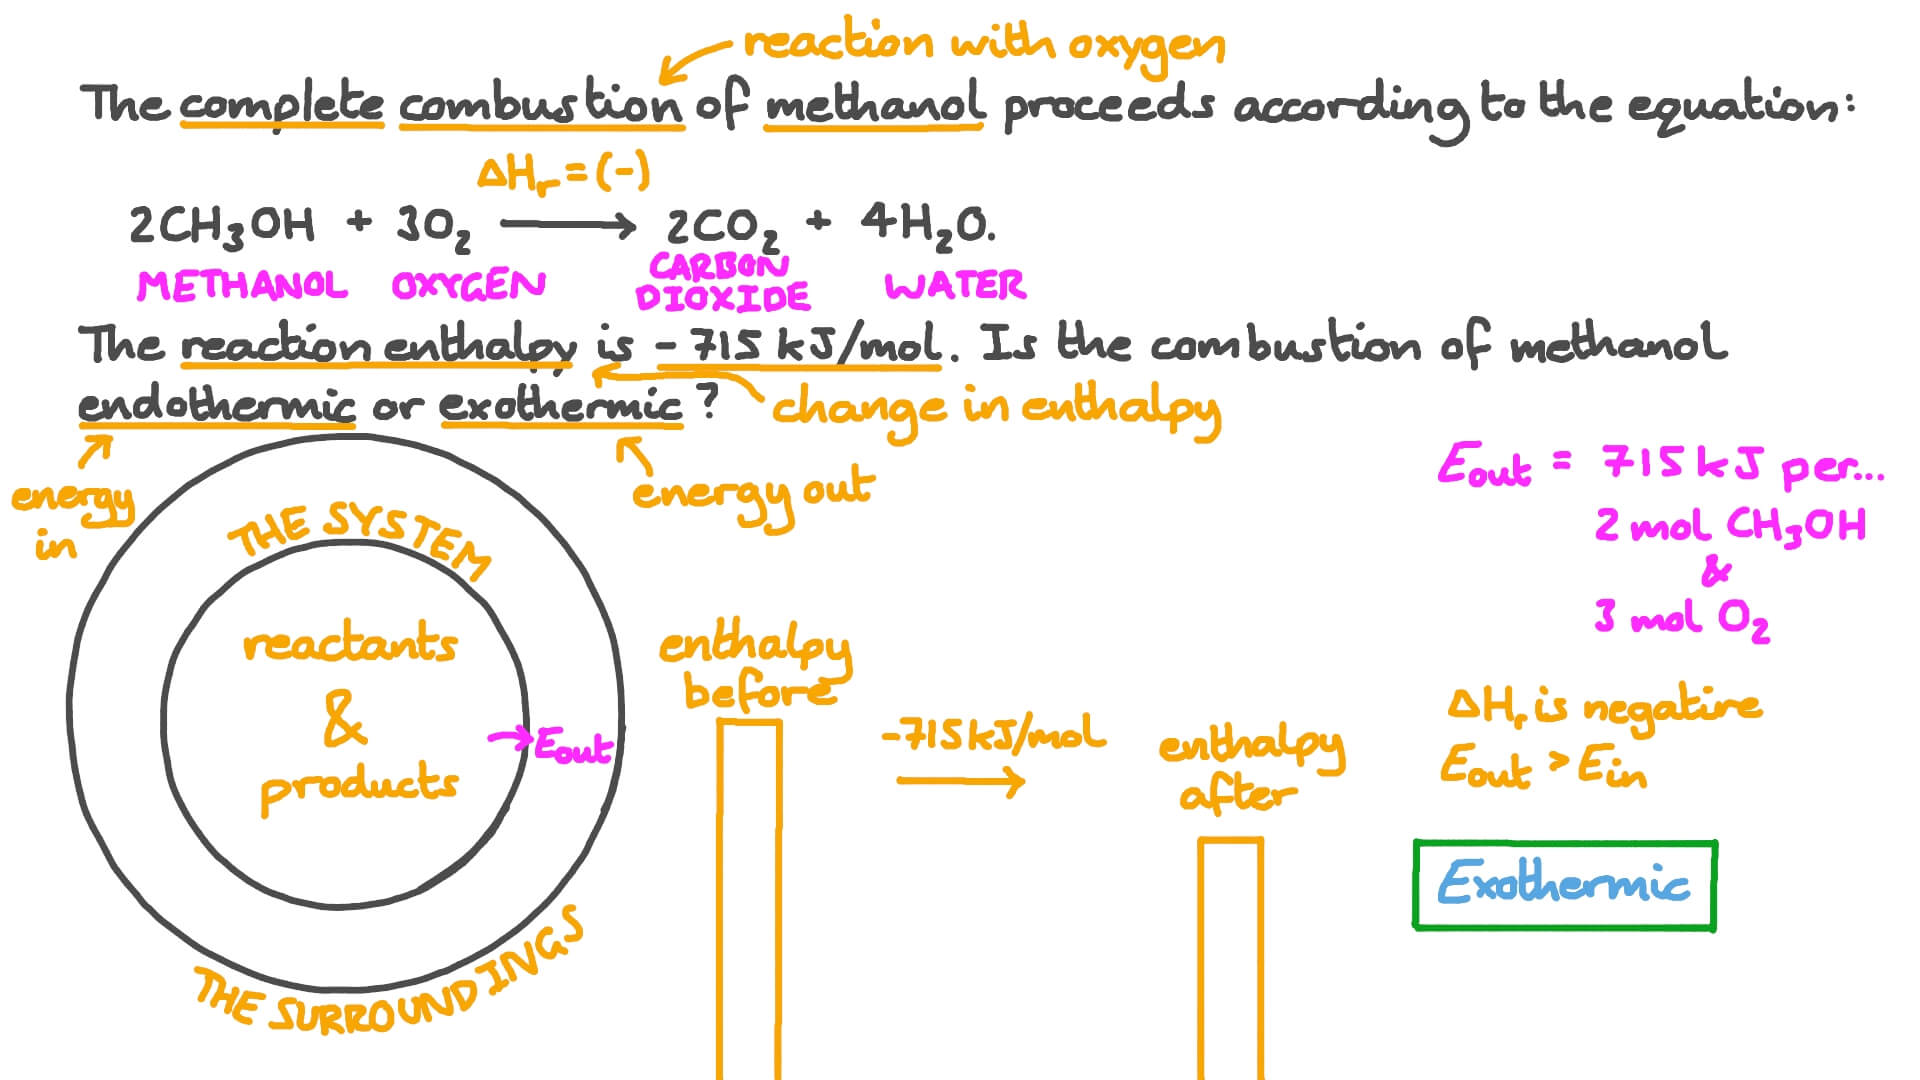 reaction with oxygen
The complete combustion of methanol proceeds according to the equation:
ΔHr = (-)
2CH₃OH + 3O₂ ⟶ 2CO₂ + 4H₂O.
METHANOL OXYGEN CARBON DIOXIDE WATER
The reaction enthalpy is -715 kJ/mol. Is the combustion of methanol
endothermic or exothermic?
change in enthalpy
energy in
energy out
THE SYSTEM
reactants
&
products
Eout
THE SURROUNDINGS
enthalpy
before
-715kJ/mol
enthalpy
after
Eout = 715kJ per...
2 mol CH₃OH
&
3 mol O₂
ΔHr is negative
Eout > Ein
Exothermic